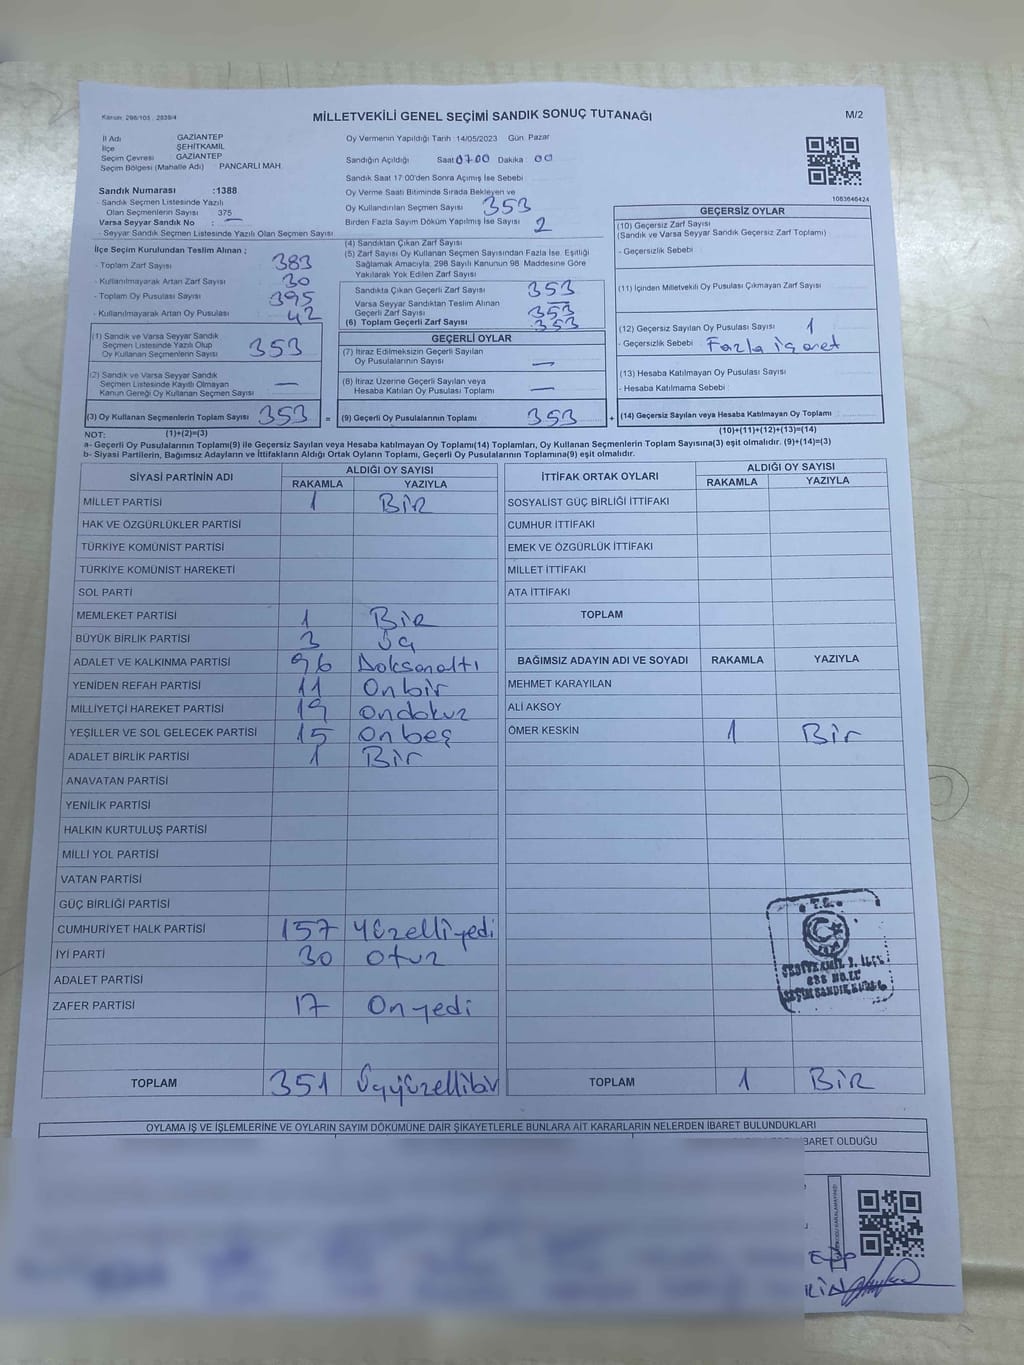 Kanun: 298/105 : 2839/4
MİLLETVEKİLİ GENEL SEÇİMİ SANDIK SONUÇ TUTANAĞI
M/2
İl Adı GAZİANTEP
İlçe ŞEHİTKAMİL
Seçim Çevresi GAZİANTEP
Seçim Bölgesi (Mahalle Adı) PANCARLI MAH.
Sandık Numarası :1388
- Sandık Seçmen Listesinde Yazılı
Olan Seçmenlerin Sayısı 375
Varsa Seyyar Sandık No : —
- Seyyar Sandık Seçmen Listesinde Yazılı Olan Seçmen Sayısı
Oy Vermenin Yapıldığı Tarih :14/05/2023 Gün: Pazar
Sandığın Açıldığı Saat 07.00 Dakika : 00
Sandık Saat 17:00'den Sonra Açımış İse Sebebi
Oy Verme Saati Bitiminde Sırada Bekleyen ve
Oy Kullandırılan Seçmen Sayısı 353
Birden Fazla Sayım Döküm Yapılmış İse Sayısı 2
1083646424
İlçe Seçim Kurulundan Teslim Alınan ;
- Toplam Zarf Sayısı 383
- Kullanılmayarak Artan Zarf Sayısı 30
- Toplam Oy Pusulası Sayısı 395
- Kullanılmayarak Artan Oy Pusulası 42
(1) Sandık ve Varsa Seyyar Sandık
Seçmen Listesinde Yazılı Olup
Oy Kullanan Seçmenlerin Sayısı 353
(2) Sandık ve Varsa Seyyar Sandık
Seçmen Listesinde Kayıtlı Olmayan
Kanun Gereği Oy Kullanan Seçmen Sayısı —
(3) Oy Kullanan Seçmenlerin Toplam Sayısı 353 =
(4) Sandıktan Çıkan Zarf Sayısı
(5) Zarf Sayısı Oy Kullanan Seçmen Sayısından Fazla İse, Eşitliği
Sağlamak Amacıyla; 298 Sayılı Kanunun 98. Maddesine Göre
Yakılarak Yok Edilen Zarf Sayısı
Sandıkta Çıkan Geçerli Zarf Sayısı 353
Varsa Seyyar Sandıktan Teslim Alınan
Geçerli Zarf Sayısı 353
(6) Toplam Geçerli Zarf Sayısı 353
GEÇERLİ OYLAR
(7) İtiraz Edilmeksizin Geçerli Sayılan
Oy Pusulalarının Sayısı —
(8) İtiraz Üzerine Geçerli Sayılan veya
Hesaba Katılan Oy Pusulası Toplamı —
(9) Geçerli Oy Pusulalarının Toplamı 353 +
GEÇERSİZ OYLAR
(10) Geçersiz Zarf Sayısı
(Sandık ve Varsa Seyyar Sandık Geçersiz Zarf Toplamı)
- Geçersizlik Sebebi :
(11) İçinden Milletvekili Oy Pusulası Çıkmayan Zarf Sayısı
(12) Geçersiz Sayılan Oy Pusulası Sayısı 1
- Geçersizlik Sebebi : Fazla işaret
(13) Hesaba Katılmayan Oy Pusulası Sayısı
- Hesaba Katılmama Sebebi :
(14) Geçersiz Sayılan veya Hesaba Katılmayan Oy Toplamı
NOT: (1)+(2)=(3)
(10)+(11)+(12)+(13)=(14)
a- Geçerli Oy Pusulalarının Toplamı(9) ile Geçersiz Sayılan veya Hesaba katılmayan Oy Toplamı(14) Toplamları, Oy Kullanan Seçmenlerin Toplam Sayısına(3) eşit olmalıdır. (9)+(14)=(3)
b- Siyasi Partilerin, Bağımsız Adayların ve İttifakların Aldığı Ortak Oyların Toplamı, Geçerli Oy Pusulalarının Toplamına(9) eşit olmalıdır.
SİYASİ PARTİNİN ADI ALDIĞI OY SAYISI
RAKAMLA YAZIYLA
MİLLET PARTİSİ 1 BİR
HAK VE ÖZGÜRLÜKLER PARTİSİ
TÜRKİYE KOMÜNİST PARTİSİ
TÜRKİYE KOMÜNİST HAREKETİ
SOL PARTİ
MEMLEKET PARTİSİ 1 Bir
BÜYÜK BİRLİK PARTİSİ 3 Üç
ADALET VE KALKINMA PARTİSİ 96 Doksanaltı
YENİDEN REFAH PARTİSİ 11 Onbir
MİLLİYETÇİ HAREKET PARTİSİ 19 Ondokuz
YEŞİLLER VE SOL GELECEK PARTİSİ 15 Onbeş
ADALET BİRLİK PARTİSİ 1 Bir
ANAVATAN PARTİSİ
YENİLİK PARTİSİ
HALKIN KURTULUŞ PARTİSİ
MİLLİ YOL PARTİSİ
VATAN PARTİSİ
GÜÇ BİRLİĞİ PARTİSİ
CUMHURİYET HALK PARTİSİ 157 Yüzelliyedi
İYİ PARTİ 30 Otuz
ADALET PARTİSİ
ZAFER PARTİSİ 17 Onyedi
TOPLAM 351 Üçyüzellibir
İTTİFAK ORTAK OYLARI ALDIĞI OY SAYISI
RAKAMLA YAZIYLA
SOSYALİST GÜÇ BİRLİĞİ İTTİFAKI
CUMHUR İTTİFAKI
EMEK VE ÖZGÜRLÜK İTTİFAKI
MİLLET İTTİFAKI
ATA İTTİFAKI
TOPLAM
BAĞIMSIZ ADAYIN ADI VE SOYADI RAKAMLA YAZIYLA
MEHMET KARAYILAN
ALİ AKSOY
ÖMER KESKİN 1 Bir
T.C.
TOPLAM 1 BİR
OYLAMA İŞ VE İŞLEMLERİNE VE OYLARIN SAYIM DÖKÜMÜNE DAİR ŞİKAYETLERLE BUNLARA AİT KARARLARIN NELERDEN İBARET BULUNDUKLARI
BARET OLDUĞU